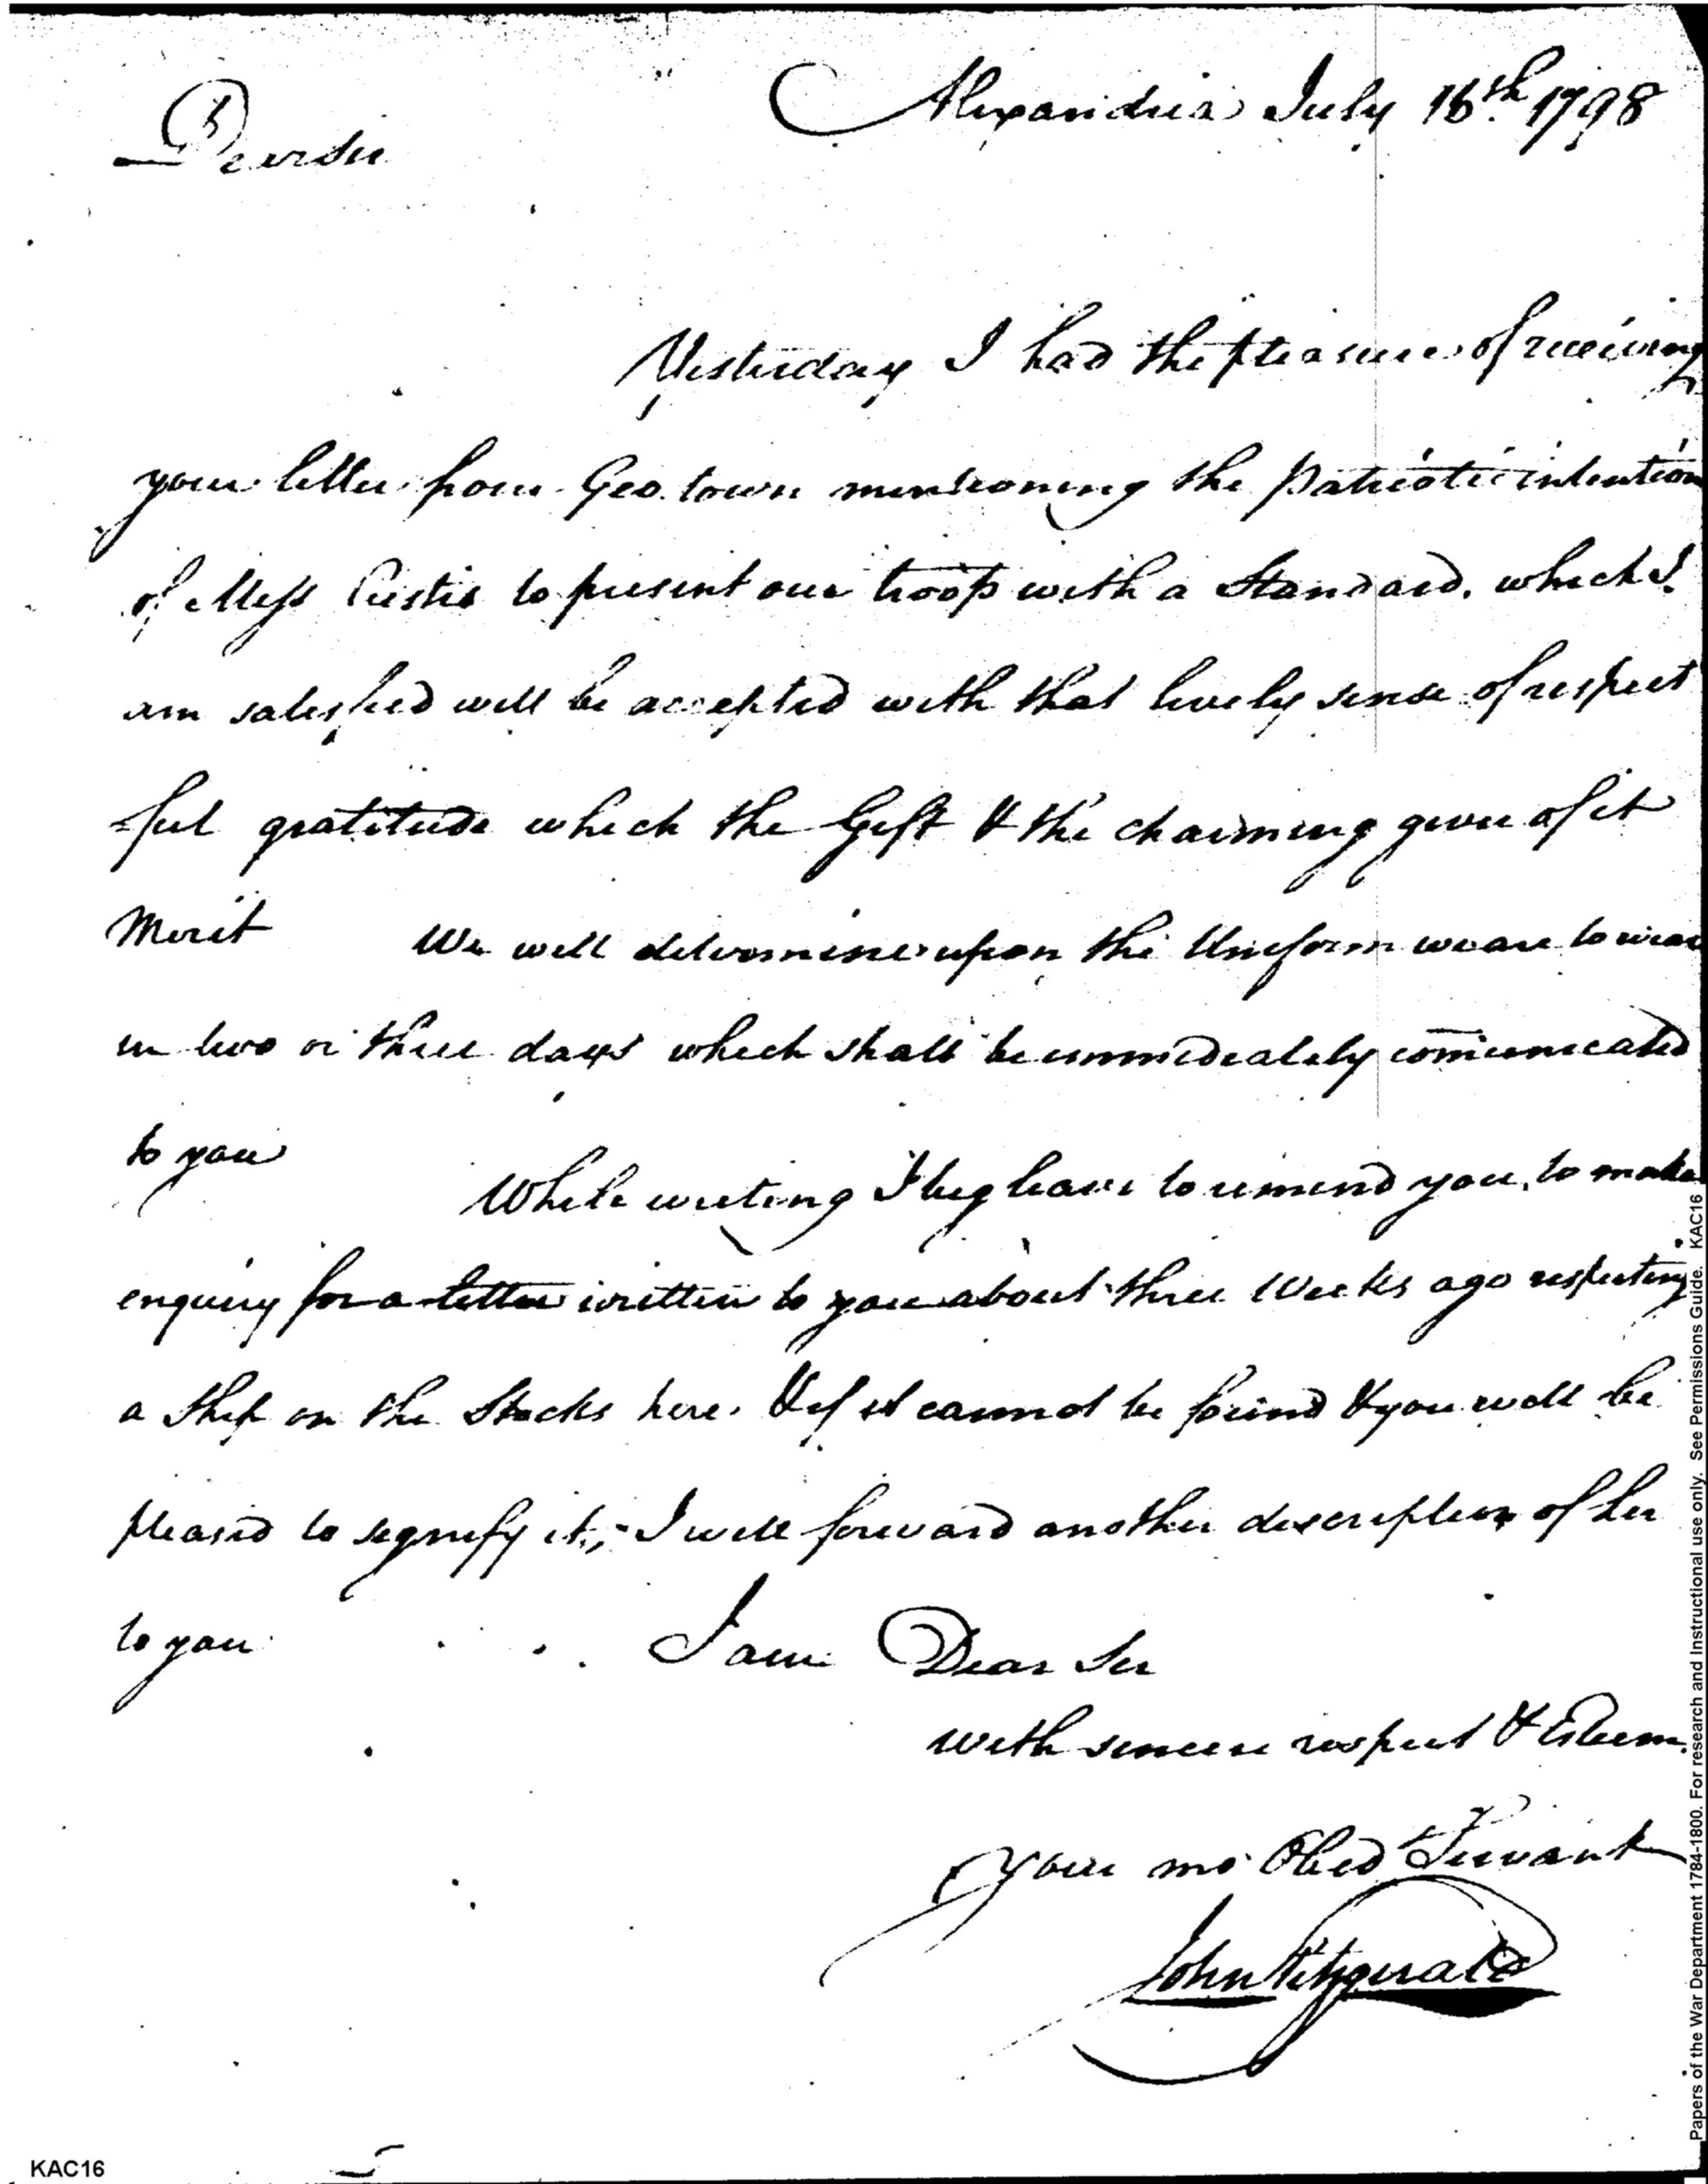 Alexandria July 16th. 1798
Dear Sir
Yesterday I had the pleasure of receiving
your letter from Geo. town mentioning the Patriotic intention
of Miss Custis to present our troop with a Standard. which I
am satisfied will be accepted with that lively sense of respect
=ful gratitude which the Gift & the charming giver of it
Merit We will determine upon the Uniform we are to wear
in two or three days which shall be immediately comunicated
to you
While writing I beg leave to remind you, to make
enquiry for a letter written to you about three Weeks ago respecting
a Ship on the Stocks here. & if it cannot be found & you will be
pleased to signify it, I will forward another description of her
to you I am Dear Sir
with sincere respect & Esteem
Your mo Obed Servant
John Fitzgerald
KAC16
Papers of the War Department 1784-1800. For research and Instructional use only. See Permissions Guide. KAC16